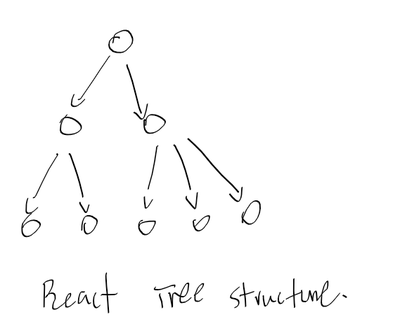 React Tree structure.